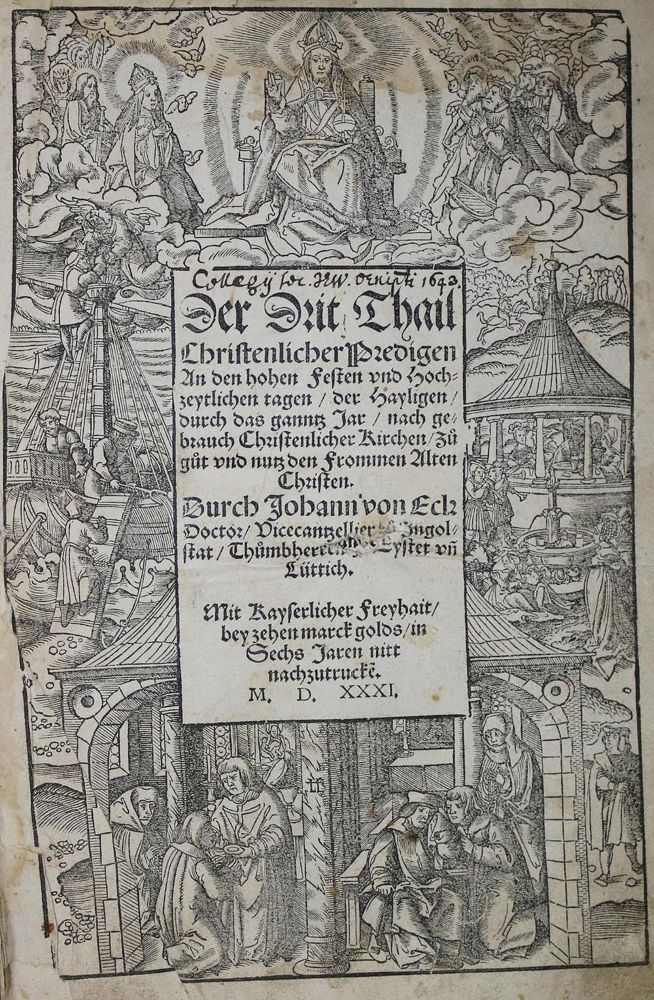 Collegij Soc. 1623.
Der Drit Thail
Christenlicher Predigen
An den hohen Festen vnd Hoch⸗
zeytlichen tagen / der Hayligen /
durch das ganntz Jar / nach ge⸗
brauch Christenlicher Kirchen / zů
gůt vnd nutz den Frommen Alten
Christen.
Durch Johann von Eck
Doctor / Vicecantzellier zů Ingol⸗
stat / Thůmbherren Eystet vñ
Lüttich.
Mit Kayserlicher Freyhait /
bey zehen marck golds / in
Sechs Jaren nitt
nachzutruckẽ.
M. D. XXXI.